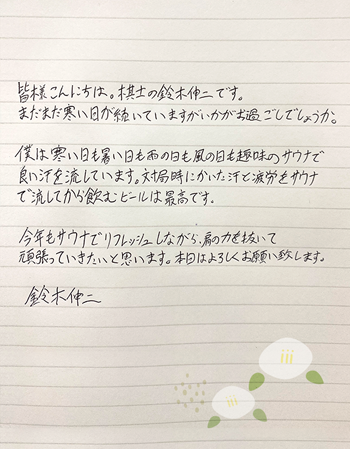 皆様こんにちは。棋士の鈴木伸二です。
まだまだ寒い日が続いていますがいかがお過ごしでしょうか。
僕は寒い日も暑い日も雨の日も風の日も趣味のサウナで
良い汗を流しています。対局時にかいた汗と疲労をサウナ
で流してから飲むビールは最高です。
今年もサウナでリフレッシュしながら、肩の力を抜いて
頑張っていきたいと思います。本日はよろしくお願い致します。
鈴木伸二